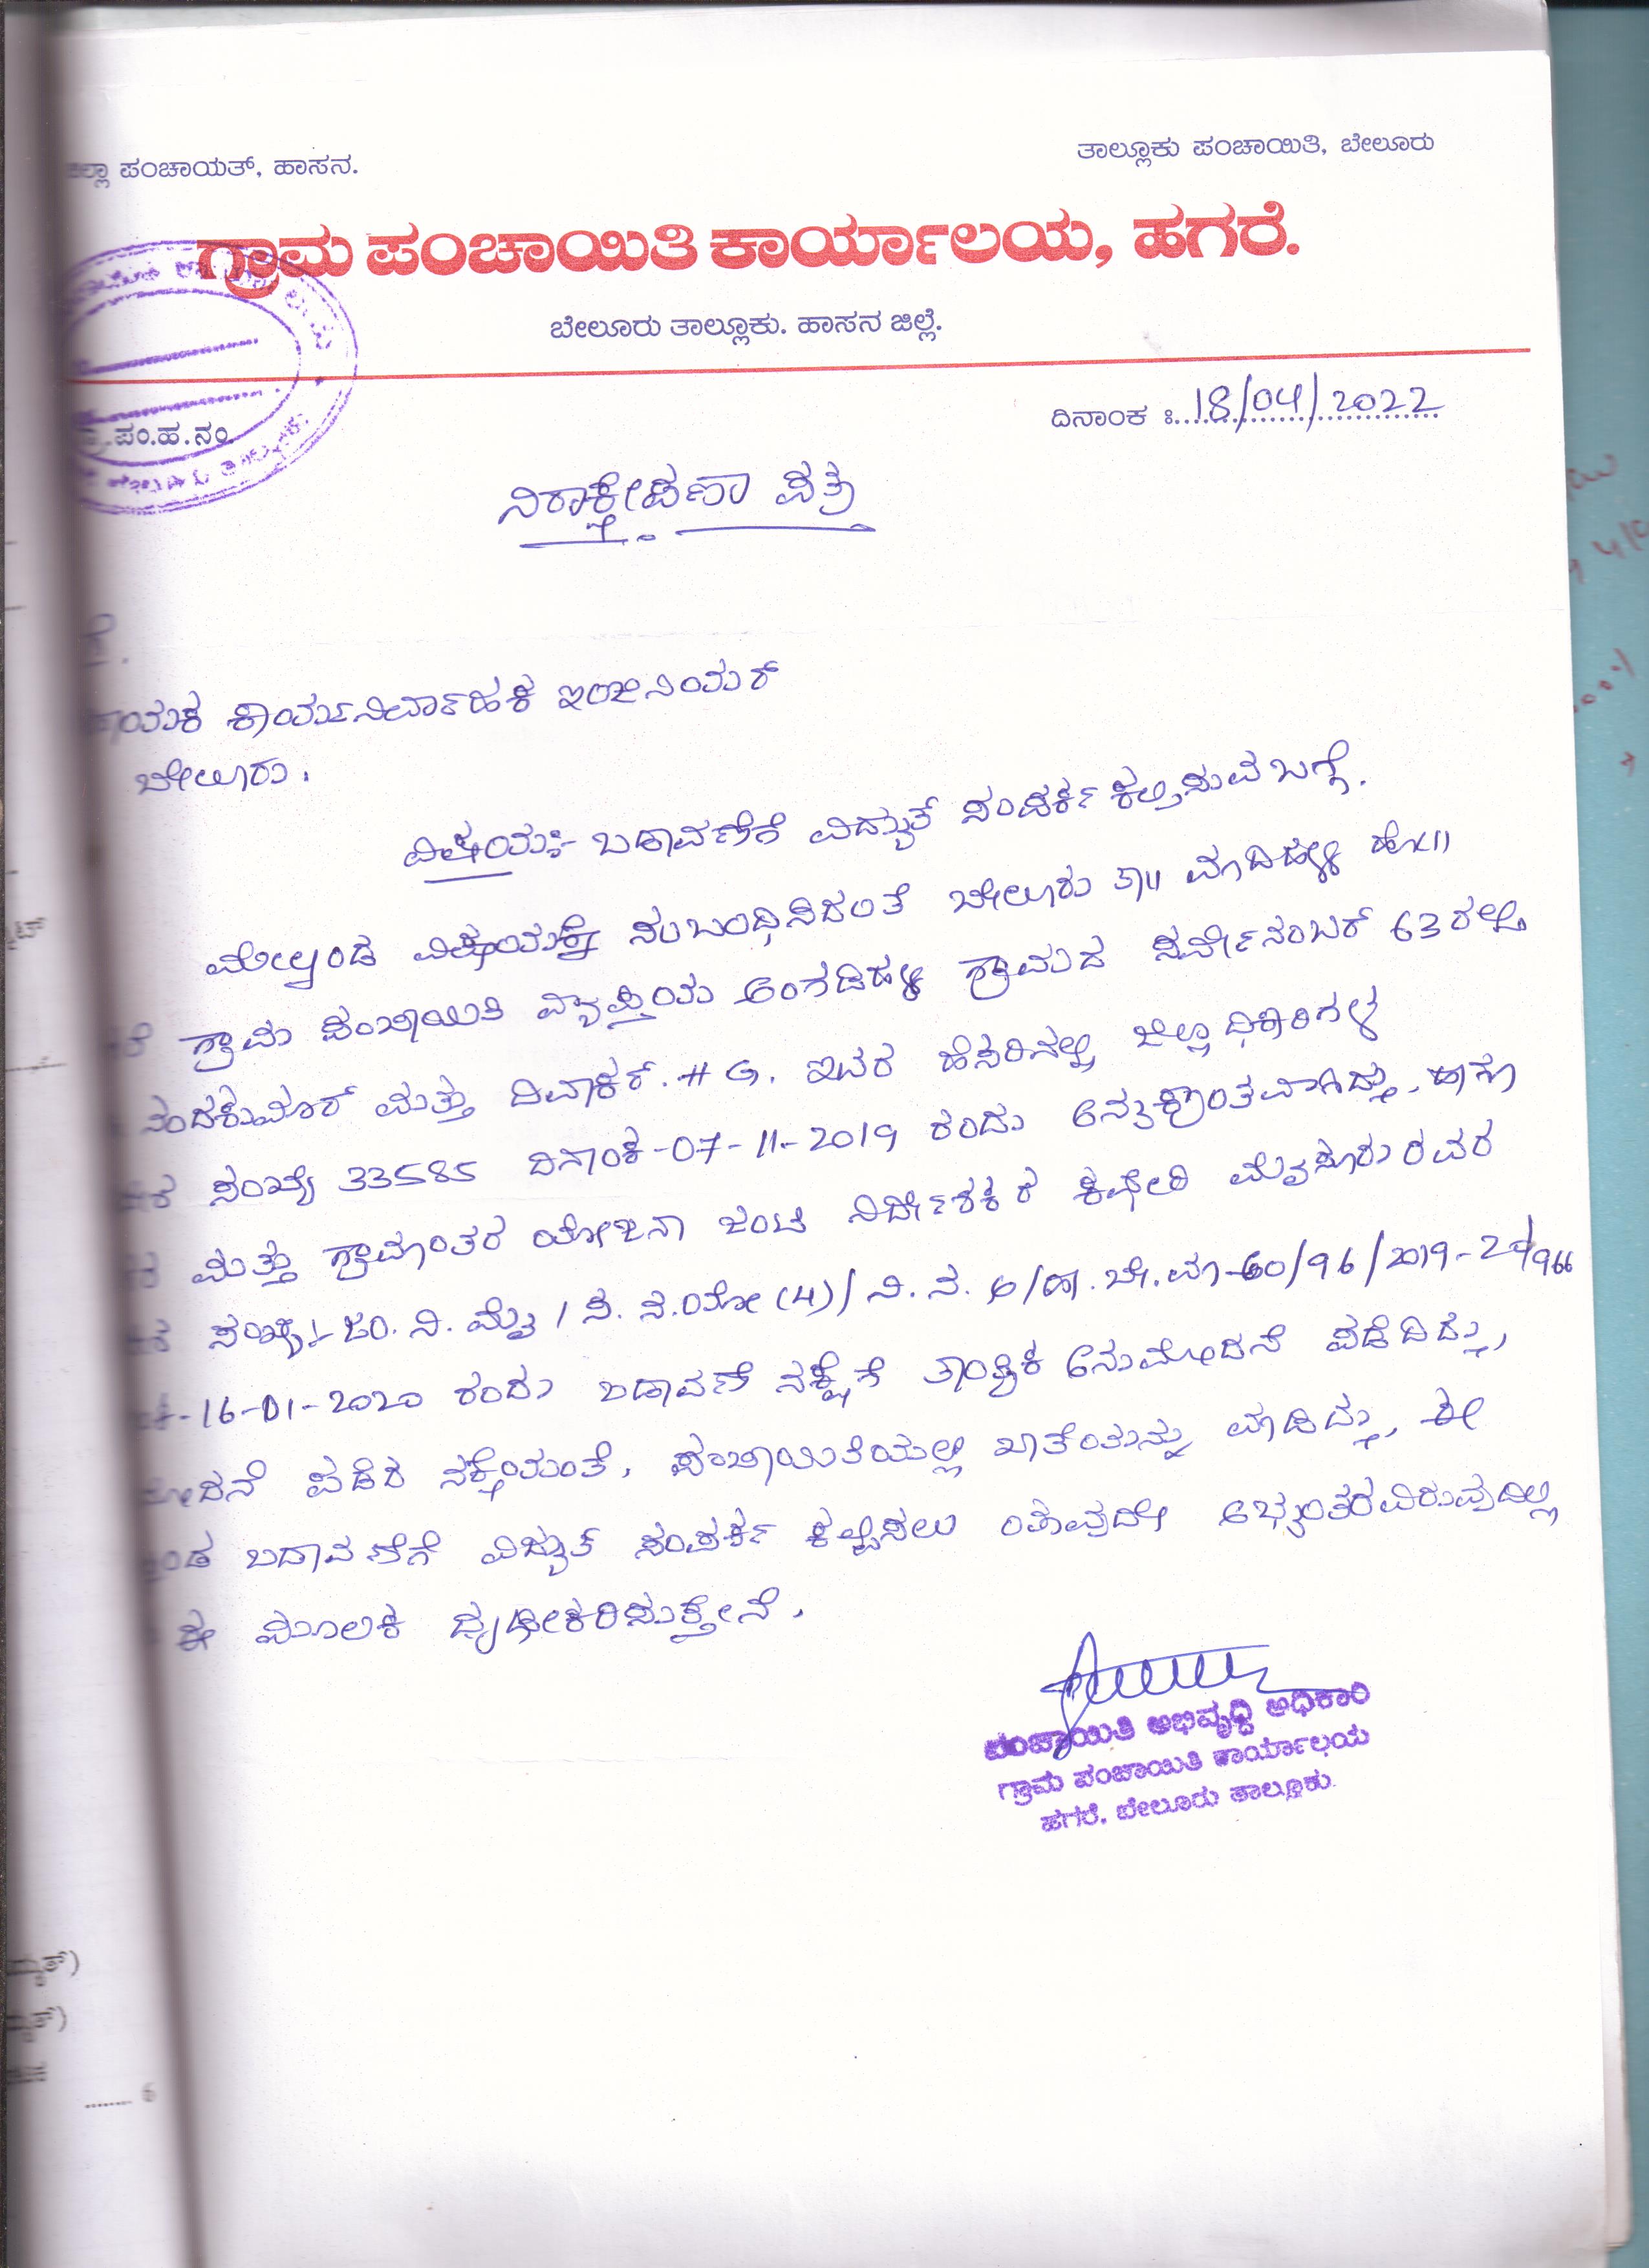 ಜಿಲ್ಲಾ ಪಂಚಾಯತ್, ಹಾಸನ.
ತಾಲ್ಲೂಕು ಪಂಚಾಯಿತಿ, ಬೇಲೂರು
ಗ್ರಾಮ ಪಂಚಾಯಿತಿ ಕಾರ್ಯಾಲಯ, ಹಗರೆ.
ಬೇಲೂರು ತಾಲ್ಲೂಕು. ಹಾಸನ ಜಿಲ್ಲೆ.
ದಿನಾಂಕ ಃ 18/04/2022
ಗ್ರಾ.ಪಂ.ಹ.ನಂ.
ನಿರಾಕ್ಷೇಪಣಾ ಪತ್ರ
ಗೆ.
ಕಾರ್ಯನಿರ್ವಾಹಕ ಇಂಜಿನಿಯರ್
ಬೇಲೂರು.
ವಿಷಯಃ- ಬಡಾವಣೆಗೆ ವಿದ್ಯುತ್ ಸಂಪರ್ಕ ಕಲ್ಪಿಸುವ ಬಗ್ಗೆ.
ಮೇಲ್ಕಂಡ ವಿಷಯಕ್ಕೆ ಸಂಬಂಧಿಸಿದಂತೆ ಬೇಲೂರು ತಾ|| ಮಾದಿಹಳ್ಳಿ ಹೋ||
ಗ್ರಾಮ ಪಂಚಾಯಿತಿ ವ್ಯಾಪ್ತಿಯ ಅಂಗಡಿಹಳ್ಳಿ ಗ್ರಾಮದ ಸರ್ವೇನಂಬರ್ 63 ರಲ್ಲಿ
ನಂದಕುಮಾರ್ ಮತ್ತು ದಿವಾಕರ್. H G. ಇವರ ಹೆಸರಿನಲ್ಲಿ ಜಿಲ್ಲಾಧಿಕಾರಿಗಳ
ಸಂಖ್ಯೆ 33585 ದಿನಾಂಕ-07-11-2019 ರಂದು ಅನ್ಯಕ್ರಾಂತವಾಗಿದ್ದು, ಹಾಗೂ
ಮತ್ತು ಗ್ರಾಮಾಂತರ ಯೋಜನಾ ಜಂಟಿ ನಿರ್ದೇಶಕರ ಕಛೇರಿ ಮೈಸೂರು ರವರ
ಸಂಖ್ಯೆ:- ಜಂ. ನಿ. ಮೈ / ಸ. ನ.ಯೋ (4)/ ವಿ. ನ. ಅ/ಹಾ.ಬೇ.ಮಾ-60/96/2019-20/966
-16-01-2020 ರಂದು ಬಡಾವಣೆ ನಕ್ಷೆಗೆ ತಾಂತ್ರಿಕ ಅನುಮೋದನೆ ಪಡೆದಿದ್ದು,
ಪಡೆದ ನಕ್ಷೆಯಂತೆ, ಪಂಚಾಯಿತಿಯಲ್ಲಿ ಖಾತೆಯನ್ನು ಮಾಡಿದ್ದು, ಈ
ಬಡಾವಣೆಗೆ ವಿದ್ಯುತ್ ಸಂಪರ್ಕ ಕಲ್ಪಿಸಲು ಯಾವುದೇ ಅಭ್ಯಂತರವಿರುವುದಿಲ್ಲ
ಈ ಮೂಲಕ ದೃಢೀಕರಿಸುತ್ತೇನೆ.
ಪಂಚಾಯಿತಿ ಅಭಿವೃದ್ಧಿ ಅಧಿಕಾರಿ
ಗ್ರಾಮ ಪಂಚಾಯಿತಿ ಕಾರ್ಯಾಲಯ
ಹಗರೆ. ಬೇಲೂರು ತಾಲ್ಲೂಕು.